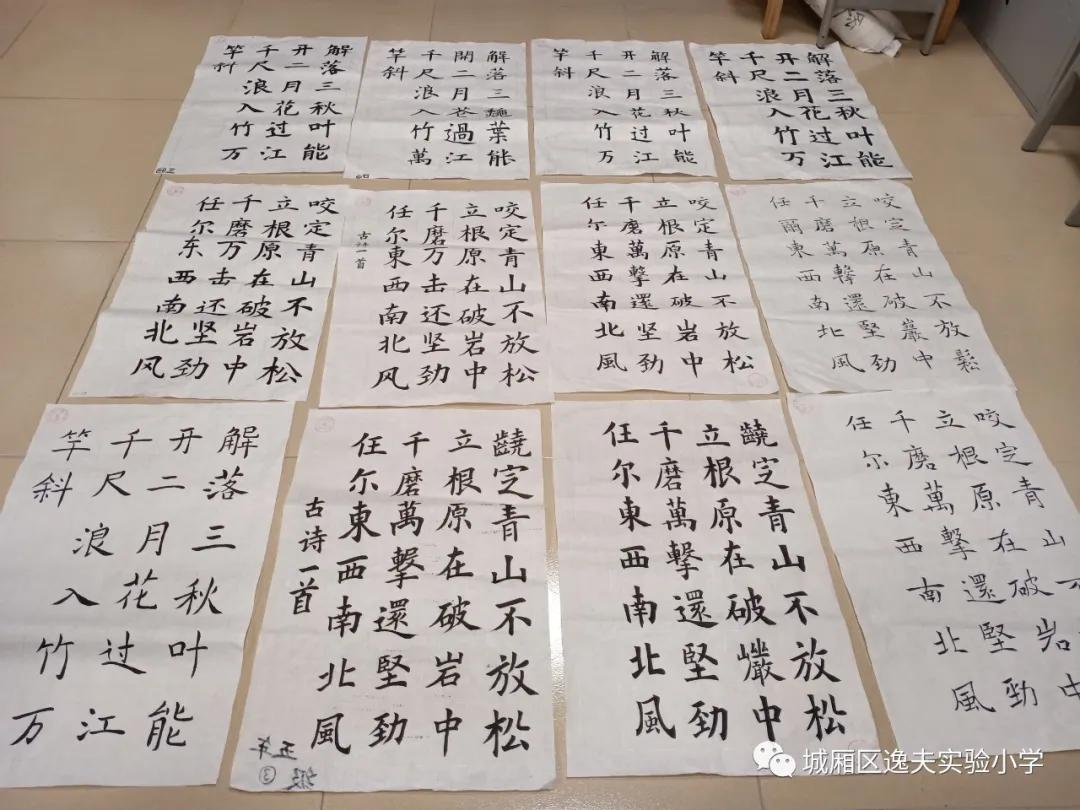 解落三秋叶能
开二月花过江
千尺浪入竹万
竿斜
解落三葉能
開二月花過江
千尺浪入竹萬
竿斜
解落三秋叶能
开二月花过江
千尺浪入竹万
竿斜
解落三秋叶能
开二月花过江
千尺浪入竹万
竿斜
咬定青山不放松
立根原在破岩中
千磨万击还坚劲
任尔东西南北风
咬定青山不放松
立根原在破岩中
千磨万击还坚劲
任尔東西南北风
古诗一首
咬定青山不放松
立根原在破岩中
千磨萬擊還坚劲
任尔東西南北風
咬定青山不放鬆
立根原在破巖中
千磨萬擊還堅勁
任爾東西南北風
解落三秋叶能
开二月花过江
千尺浪入竹万
竿斜
齩定青山不放松
立根原在破岩中
千磨萬擊還堅劲
任尔東西南北風
古诗一首
五年级③
齩定青山不放松
立根原在破巖中
千磨萬擊還堅劲
任尔東西南北風
咬定青山不
立根原在破岩中
千磨萬擊還堅劲
任尔東西南北風
城厢区逸夫实验小学